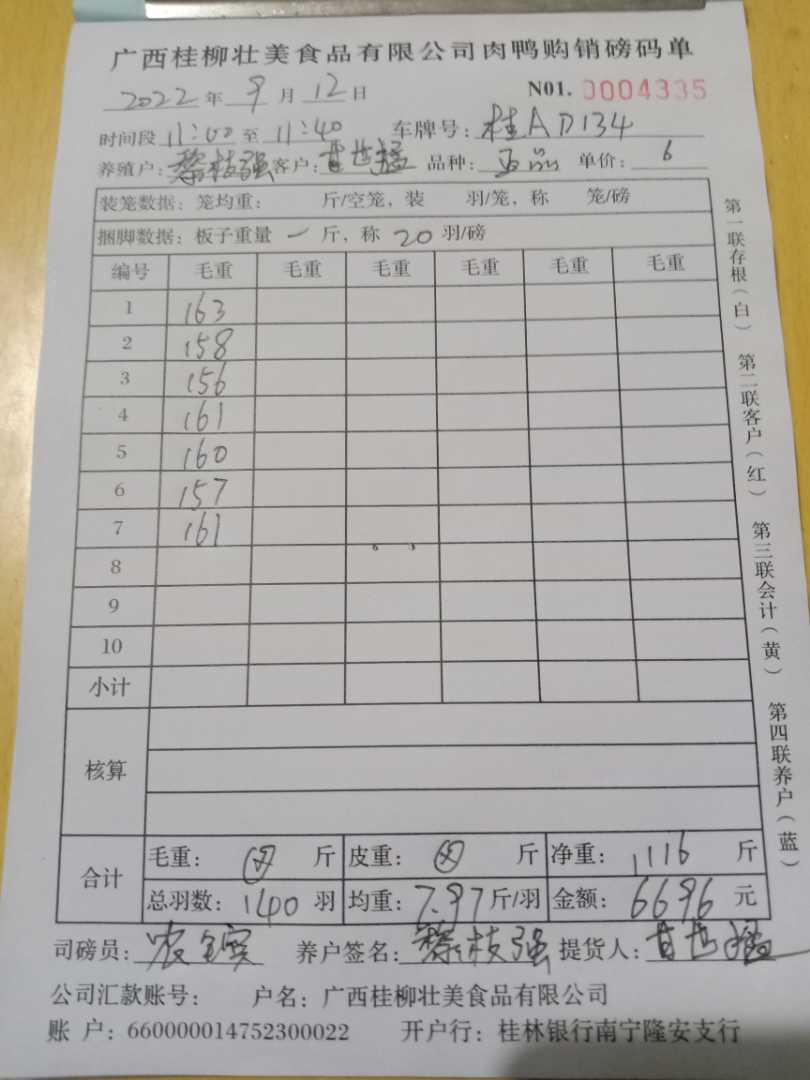 广西桂柳壮美食品有限公司肉鸭购销磅码单
2022年9月12日 N01. 0004335
时间段11:00至11:40 车牌号:桂AD134
养殖户:黎枝强客户: 品种: 单价:6
装笼数据:笼均重: 斤/空笼,装 羽/笼,称 笼/磅
捆脚数据:板子重量一斤,称20羽/磅
编号 毛重 毛重 毛重 毛重 毛重 毛重
1 163
2 158
3 156
4 161
5 160
6 157
7 161
8
9
10
小计
核算
合计
毛重: 斤 皮重: 斤 净重:1116斤
总羽数:140羽 均重:7.97斤/羽 金额:6696元
司磅员: 养户签名:黎枝强 提货人:
公司汇款账号: 户名:广西桂柳壮美食品有限公司
账 户:660000014752300022 开户行:桂林银行南宁隆安支行
第一联存根(白) 第二联客户(红) 第三联会计(黄) 第四联养户(蓝)